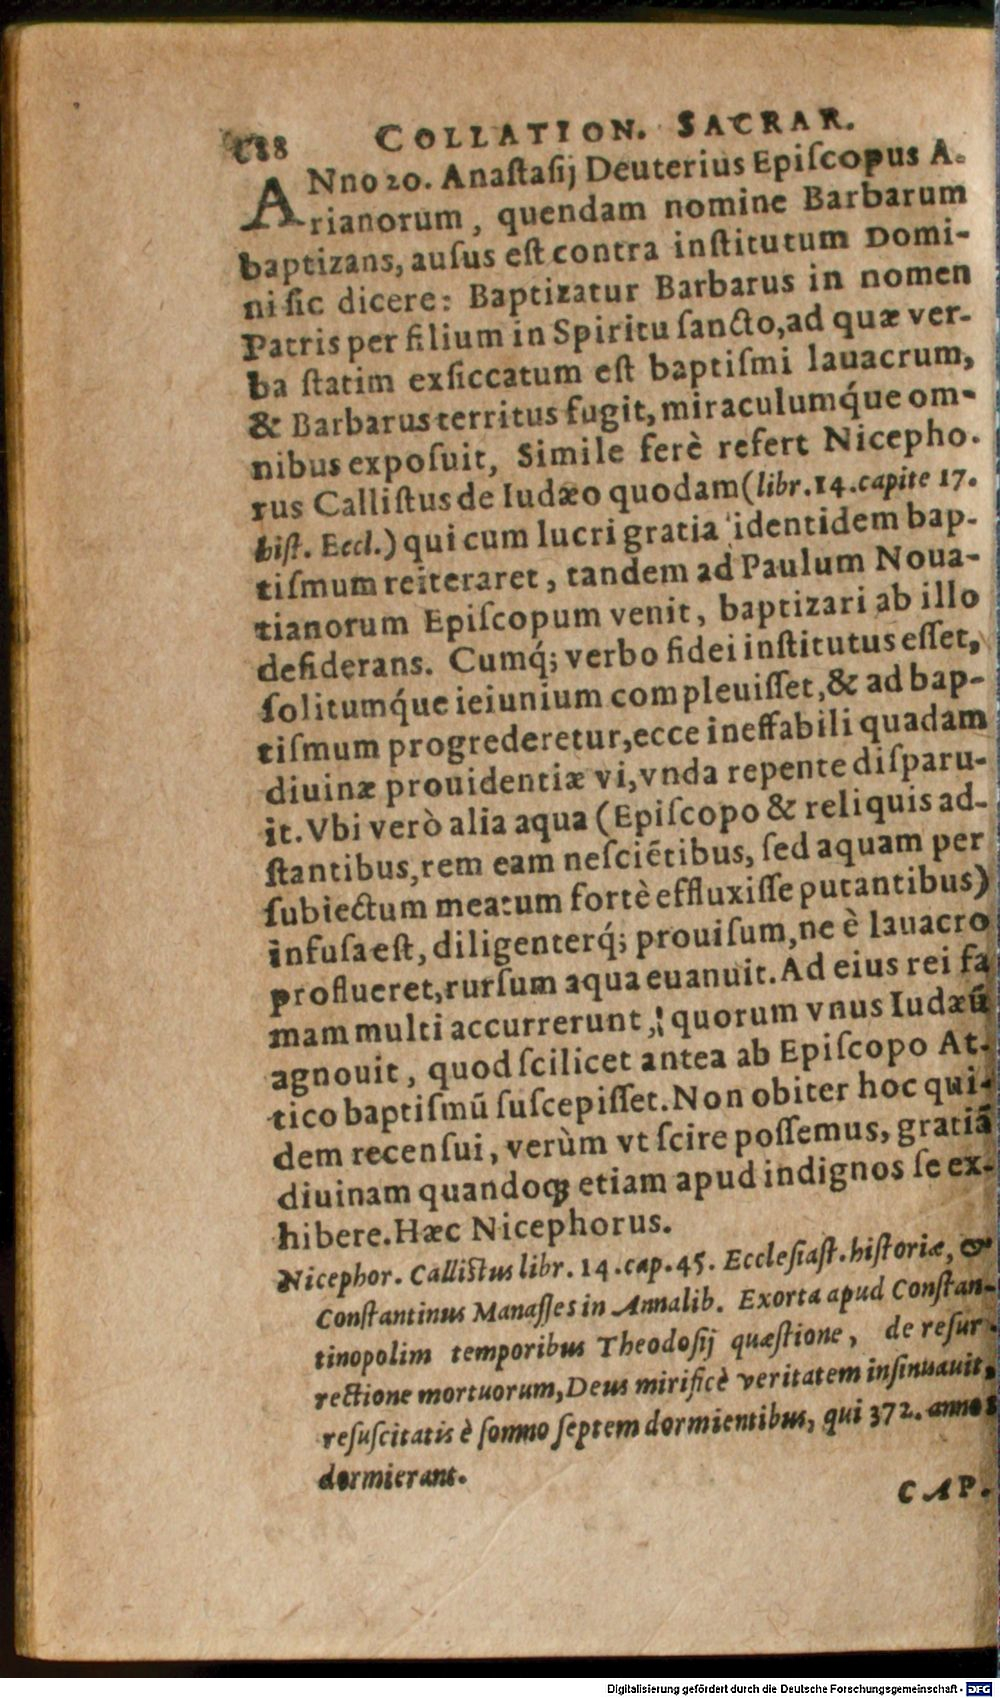 COLLATION. SACRAR.
ANno 20. Anaſtaſij Deuterius Epiſcopus A-
rianorum, quendam nomine Barbarum
baptizans, auſus eſt contra inſtitutum Domi-
ni ſic dicere: Baptizatur Barbarus in nomen
Patris per filium in Spiritu ſancto, ad quæ ver-
ba ſtatim exſiccatum eſt baptiſmi lauacrum,
& Barbarus territus fugit, miraculumq́ue om-
nibus expoſuit, Simile ferè refert Nicepho-
rus Calliſtus de Iudæo quodam (libr. 14. capite 17.
hiſt. Eccl.) qui cum lucri gratia identidem bap-
tiſmum reiteraret, tandem ad Paulum Noua-
tianorum Epiſcopum venit, baptizari ab illo
deſiderans. Cumq́; verbo fidei inſtitutus eſſet,
ſolitumq́ue ieiunium compleuiſſet, & ad bap-
tiſmum progrederetur, ecce ineffabili quadam
diuinæ prouidentiæ vi, vnda repente diſparu-
it. Vbi verò alia aqua (Epiſcopo & reliquis ad-
ſtantibus, rem eam neſciẽtibus, ſed aquam per
ſubiectum meatum fortè effluxiſſe putantibus)
infuſa eſt, diligenterq́; prouiſum, ne è lauacro
proflueret, rurſum aqua euanuit. Ad eius rei fa
mam multi accurrerunt, quorum vnus Iudæũ
agnouit, quod ſcilicet antea ab Epiſcopo At-
tico baptiſmũ ſuſcepiſſet. Non obiter hoc qui-
dem recenſui, verùm vt ſcire poſſemus, gratiã
diuinam quandoq; etiam apud indignos ſe ex-
hibere. Hæc Nicephorus.
Nicephor. Calliſtus libr. 14. cap. 45. Eccleſiaſt. hiſtoriæ, &
Conſtantinus Manaſſes in Annalib. Exorta apud Conſtan-
tinopolim temporibus Theodoſij quæſtione, de reſur-
rectione mortuorum, Deus mirificè veritatem inſinuauit,
reſuſcitatis è ſomno ſeptem dormientibus, qui 372. annos
dormierant.
CAP.
Digitalisierung gefördert durch die Deutsche Forschungsgemeinschaft - DFG